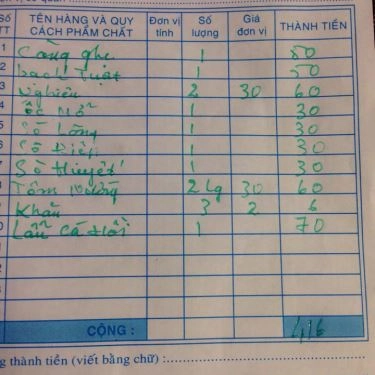 Số TT TÊN HÀNG VÀ QUY CÁCH PHẨM CHẤT Đơn vị tính Số lượng Giá đơn vị THÀNH TIỀN
1 Càng ghẹ 1 50
2 bạch tuột 1 50
3 Nghêu 2 30 60
4 ốc Mỡ 1 30
5 Sò Lông 1 30
6 Sò Điệp 1 30
7 Sò Huyết 1 30
8 Tôm nướng 2 lg 30 60
9 Khăn 3 2 6
0 Lẩu Cá Hồi 1 70
CỘNG : 416
g thành tiền (viết bằng chữ) :